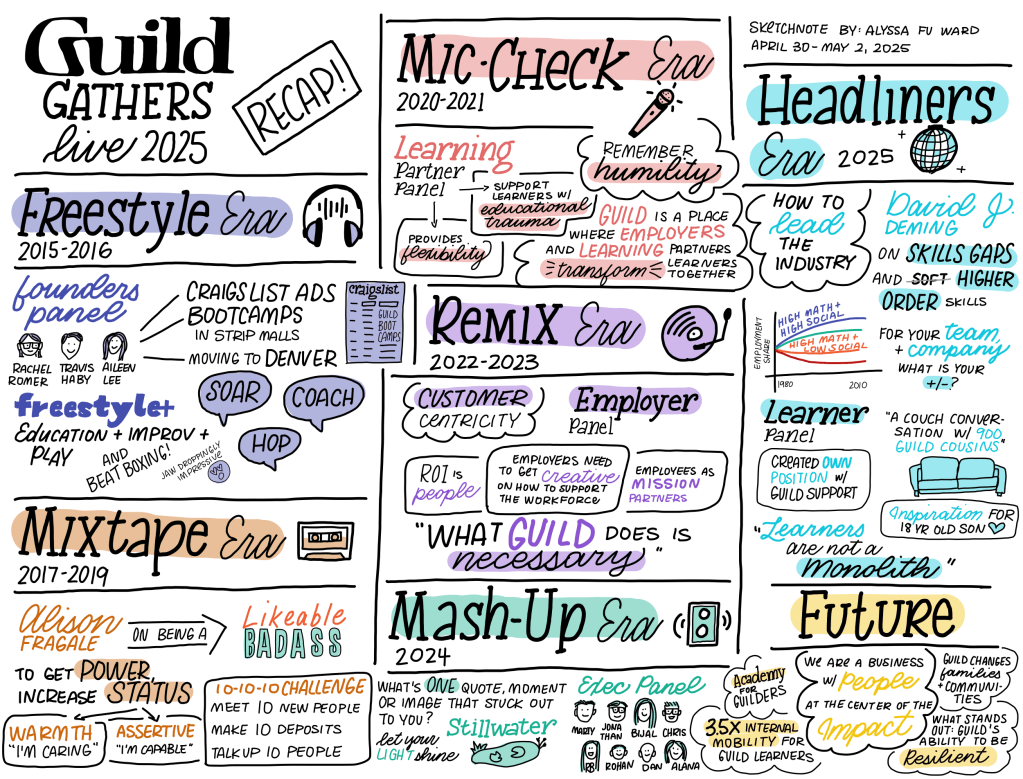 Guild
GATHERS
live 2025
RECAP!
Freestyle Era
2015-2016
founders
panel
RACHEL
ROMER
TRAVIS
HABY
AILEEN
LEE
CRAIGSLIST ADS
BOOTCAMPS
IN STRIP MALLS
MOVING TO DENVER
craigslist
GUILD
BOOT
CAMPS
freestyle+
EDUCATION + IMPROV +
PLAY
AND
BEAT BOXING!
JAW DROPPINGLY
IMPRESSIVE
SOAR
COACH
HOP
Mixtape Era
2017-2019
Alison
FRAGALE
ON BEING A
Likeable
BADASS
TO GET POWER,
INCREASE STATUS
WARMTH
"I'M CARING"
ASSERTIVE
"I'M CAPABLE"
10-10-10 CHALLENGE
MEET 10 NEW PEOPLE
MAKE 10 DEPOSITS
TALK UP 10 PEOPLE
Mic-Check Era
2020-2021
Learning
Partner
Panel
SUPPORT
LEARNERS W/
educational
trauma
PROVIDES
flexibility
REMEMBER
humility
GUILD IS A PLACE
WHERE EMPLOYERS
AND LEARNING PARTNERS
transform
LEARNERS
TOGETHER
Remix Era
2022-2023
CUSTOMER
CENTRICITY
Employer
Panel
ROI IS
people
EMPLOYERS NEED
TO GET creative
ON HOW TO SUPPORT
THE WORKFORCE
EMPLOYEES AS
MISSION
PARTNERS
"WHAT GUILD DOES IS
necessary"
Mash-Up Era
2024
WHAT'S ONE QUOTE, MOMENT
OR IMAGE THAT STUCK OUT
TO YOU?
Stillwater
let your
LIGHT shine
Exec Panel
MARTY
JONA
THAN
BIJAL
CHRIS
BB
ROHAN
DAN
ALANA
SKETCHNOTE BY: ALYSSA FU WARD
APRIL 30-MAY 2, 2025
Headliners
Era 2025
HOW TO
lead
THE
INDUSTRY
David J.
DEMING
ON SKILLS GAPS
AND SOFT HIGHER
ORDER SKILLS
EMPLOYMENT
SHARE
HIGH MATH +
HIGH SOCIAL
HIGH MATH +
LOW SOCIAL
1980
2010
FOR YOUR team,
+ company
WHAT IS YOUR
+/-?
Learner
Panel
CREATED OWN
POSITION W/
GUILD SUPPORT
"A COUCH CONVER-
SATION W/ 900
GUILD COUSINS"
Inspiration FOR
18 YR OLD SON
"Learners
are not a
Monolith"
Future
Academy
FOR
GUILDERS
3.5X INTERNAL
MOBILITY FOR
GUILD LEARNERS
WE ARE A BUSINESS
W/ People
AT THE CENTER OF THE
Impact
GUILD CHANGES
families
+ COMMUNI-
TIES
WHAT STANDS
OUT: GUILD'S
ABILITY TO BE
Resilient